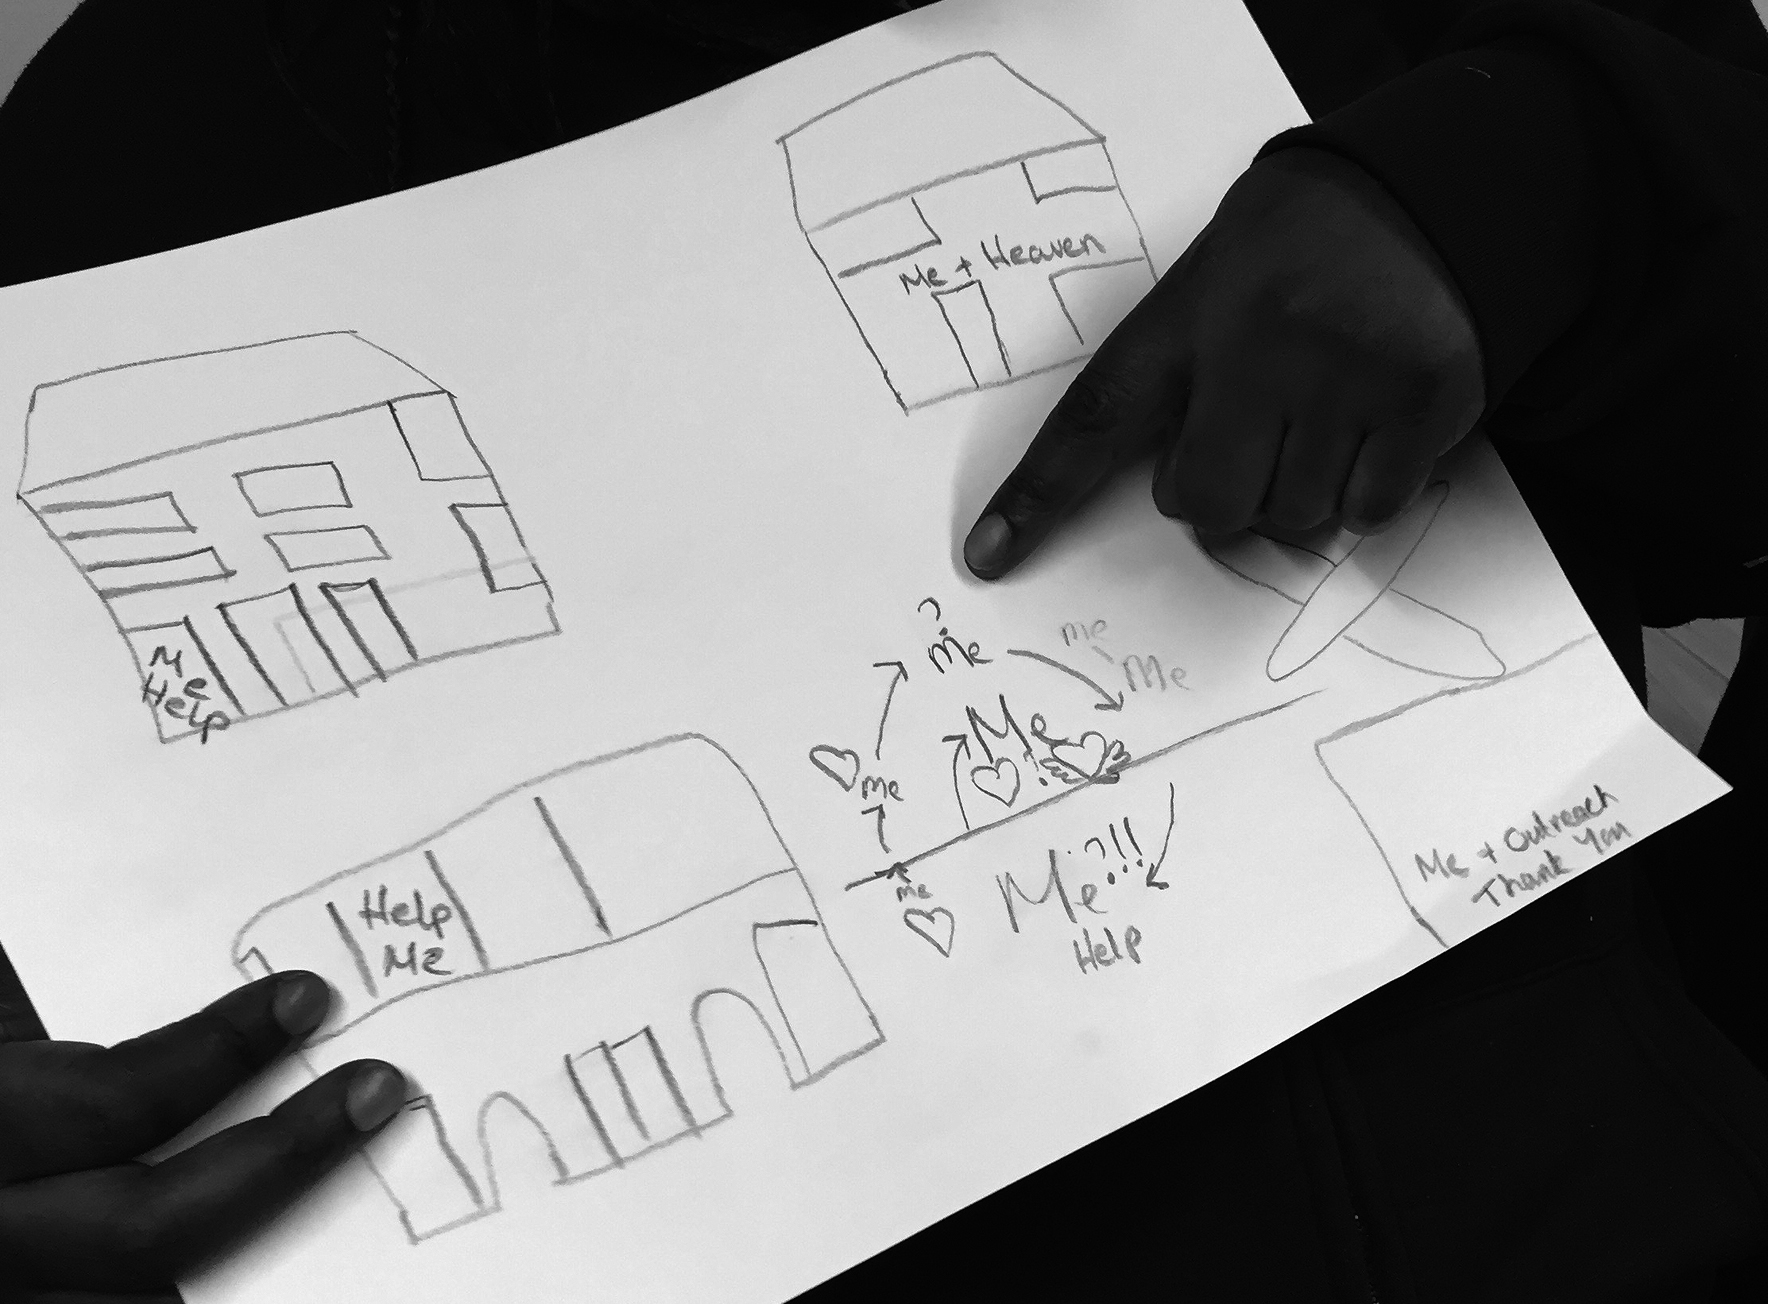 Me + Heaven
Me
Help
?
Me
me
Me
Me
?
me
Help
Me
me
Me?!!
Help
Me + Outreach
Thank You